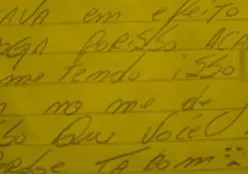 AVA em efeito
OGA PORISSO ACA
metendo isso
no me de
SO QUE VOCÊ
TA BOM